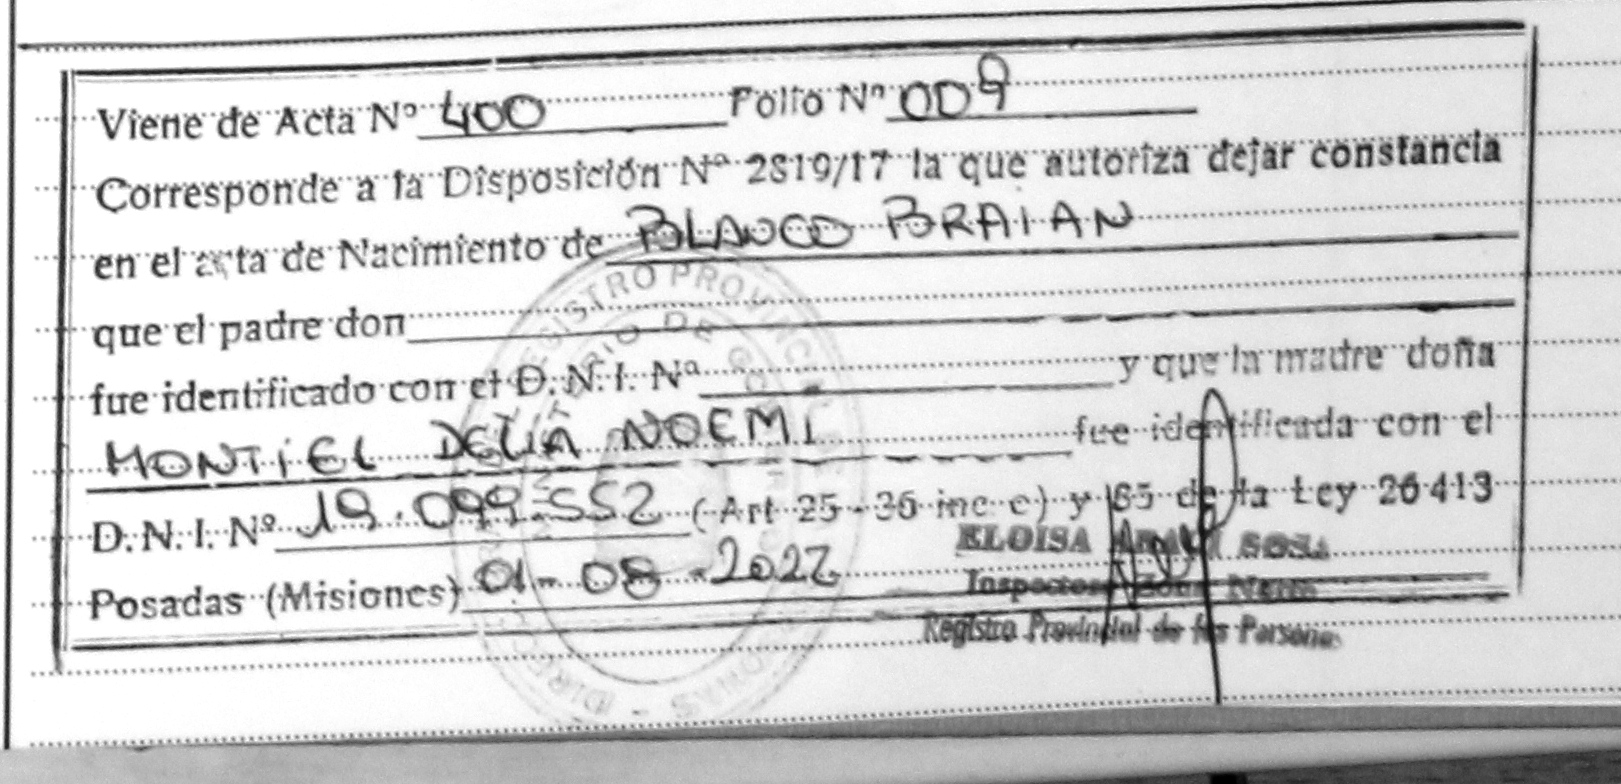 Viene de Acta Nº 400 Folio Nº 009
Corresponde a la Disposición Nº 2819/17 la que autoriza dejar constancia
en el acta de Nacimiento de BLANCO BRAIAN
que el padre don
fue identificado con el D.N.I. Nº y que la madre doña
MONTIEL DELIA NOEMI fue identificada con el
D.N.I. Nº 19.099.552 (Art 25-36 inc c) y 85 de la Ley 26413
Posadas (Misiones) 01-08-2022
ELOISA SOSA
Registro Provincial de las Personas
REGISTRO PROVINCIAL DE